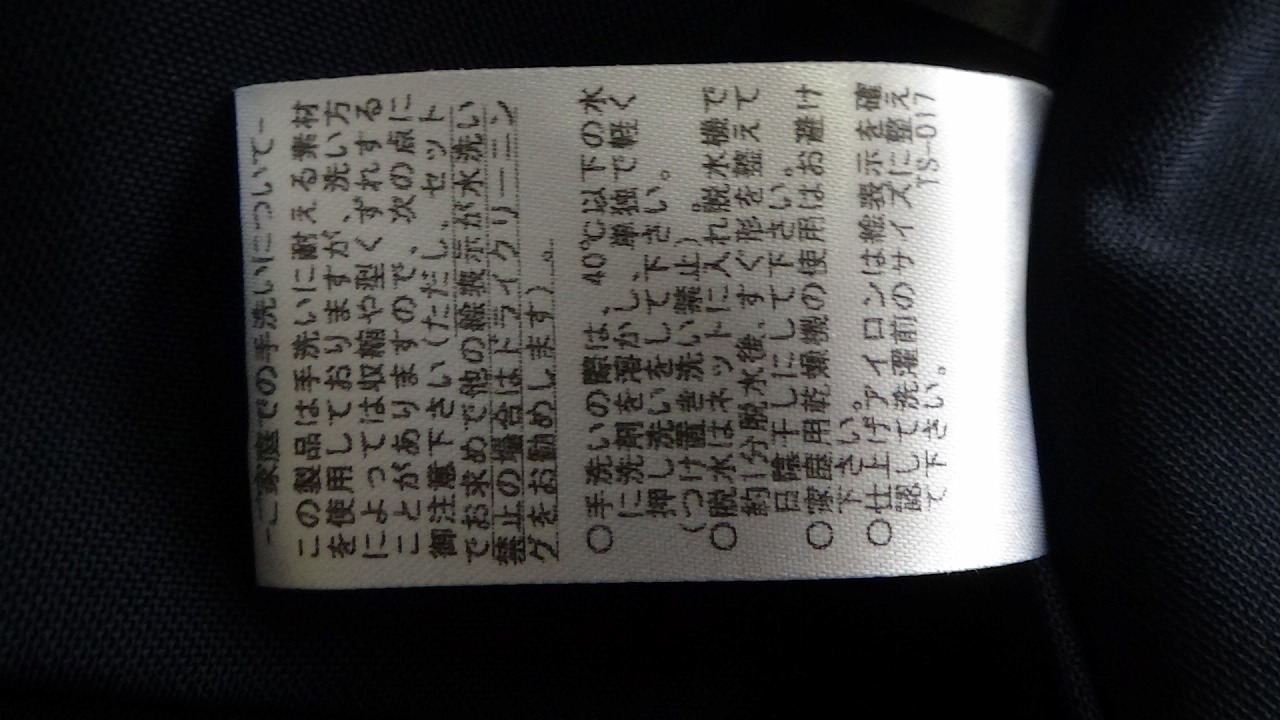 −ご家庭での手洗いについて−
この製品は手洗いに耐える素材
を使用しておりますが、洗い方
によっては収縮や型くずれする
ことがありますので、次の点に
御注意下さい(ただし、セット
でお求めで他の絵表示が水洗い
禁止の場合はドライクリーニン
グをお勧めします)。
○手洗いの際は、40℃以下の水
に洗剤を溶かし、単独で軽く
押し洗いをして下さい。
(つけ置き洗い禁止)
○脱水はネットに入れ脱水機で
約1分脱水後、すぐ形を整えて
日陰干しにして下さい。
○家庭用乾燥機の使用はお避け
下さい。
○仕上げアイロンは絵表示を確
認して洗濯前のサイズに整え
て下さい。 TS-017